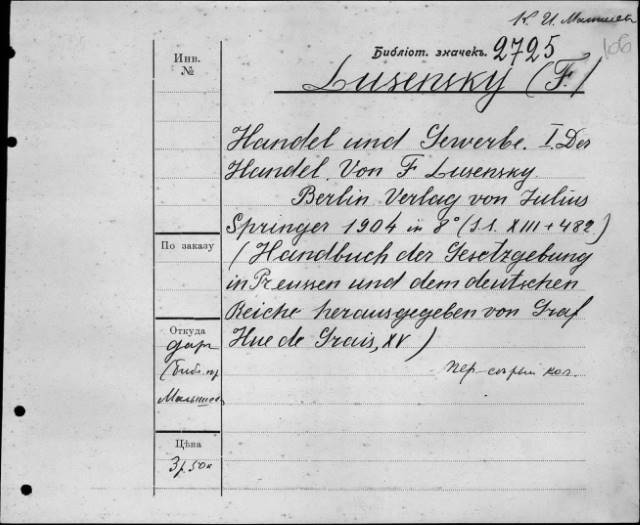 К. И. Малышев
106
Библіот. значекъ. 2725
Инв.
№
Lusensky (F.)
Handel und Gewerbe. I. Der
Handel. Von F. Lusensky.
Berlin Verlag von Julius
Springer 1904 in 8° (S.S. XIII + 482.)
(Handbuch der Gesetzgebung
in Preussen und dem deutschen
Reiche herausgegeben von Graf
Hue de Grais, XV)
По заказу
Откуда
дар
(библ. пр
Малышев
Цѣна
3 р. 50 к
пер. кол.